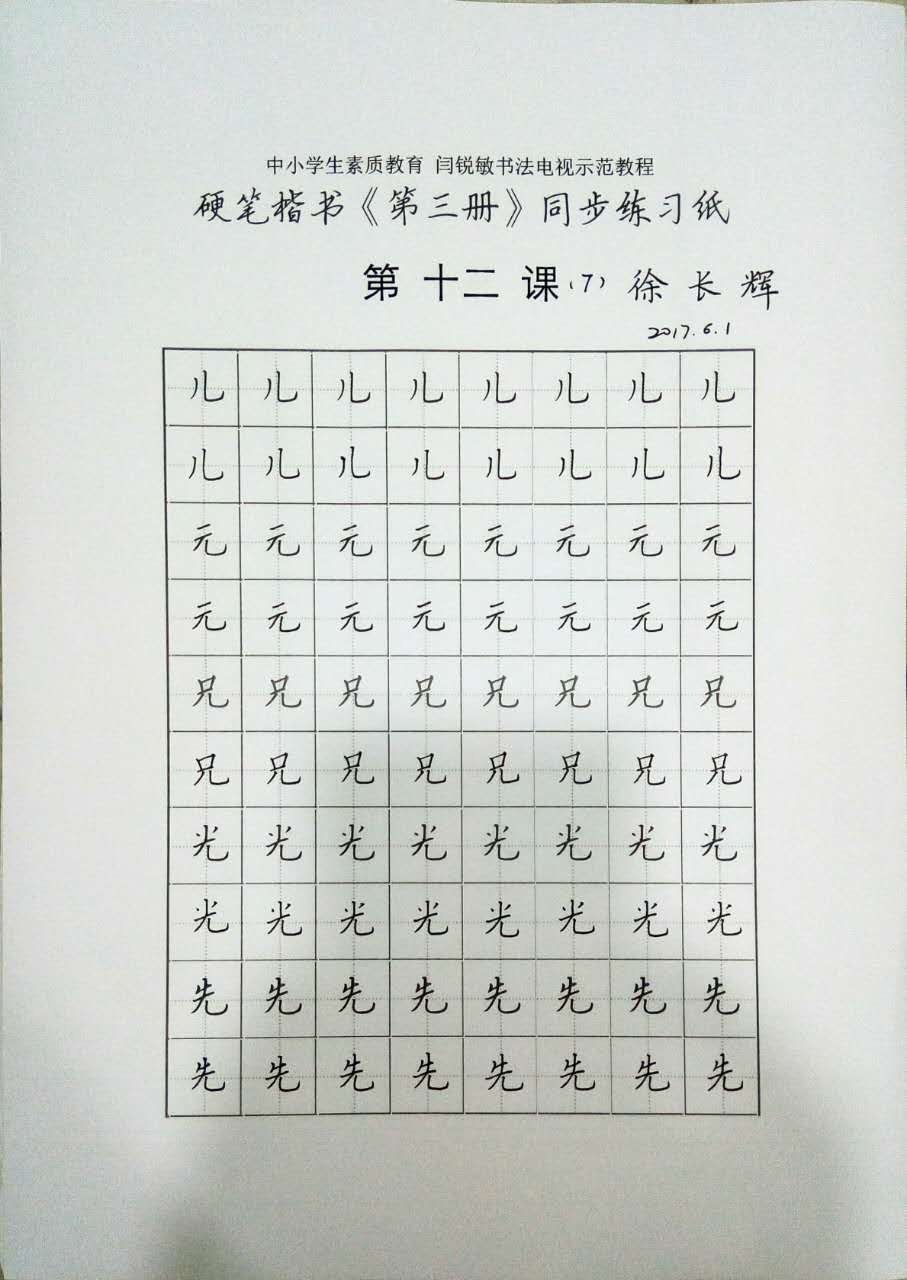 中小学生素质教育 闫锐敏书法电视示范教程
硬笔楷书《第三册》同步练习纸
第 十二 课（7） 徐长辉
2017.6.1
儿 儿 儿 儿 儿 儿 儿 儿
儿 儿 儿 儿 儿 儿 儿 儿
元 元 元 元 元 元 元 元
元 元 元 元 元 元 元 元
兄 兄 兄 兄 兄 兄 兄 兄
兄 兄 兄 兄 兄 兄 兄 兄
光 光 光 光 光 光 光 光
光 光 光 光 光 光 光 光
先 先 先 先 先 先 先 先
先 先 先 先 先 先 先 先